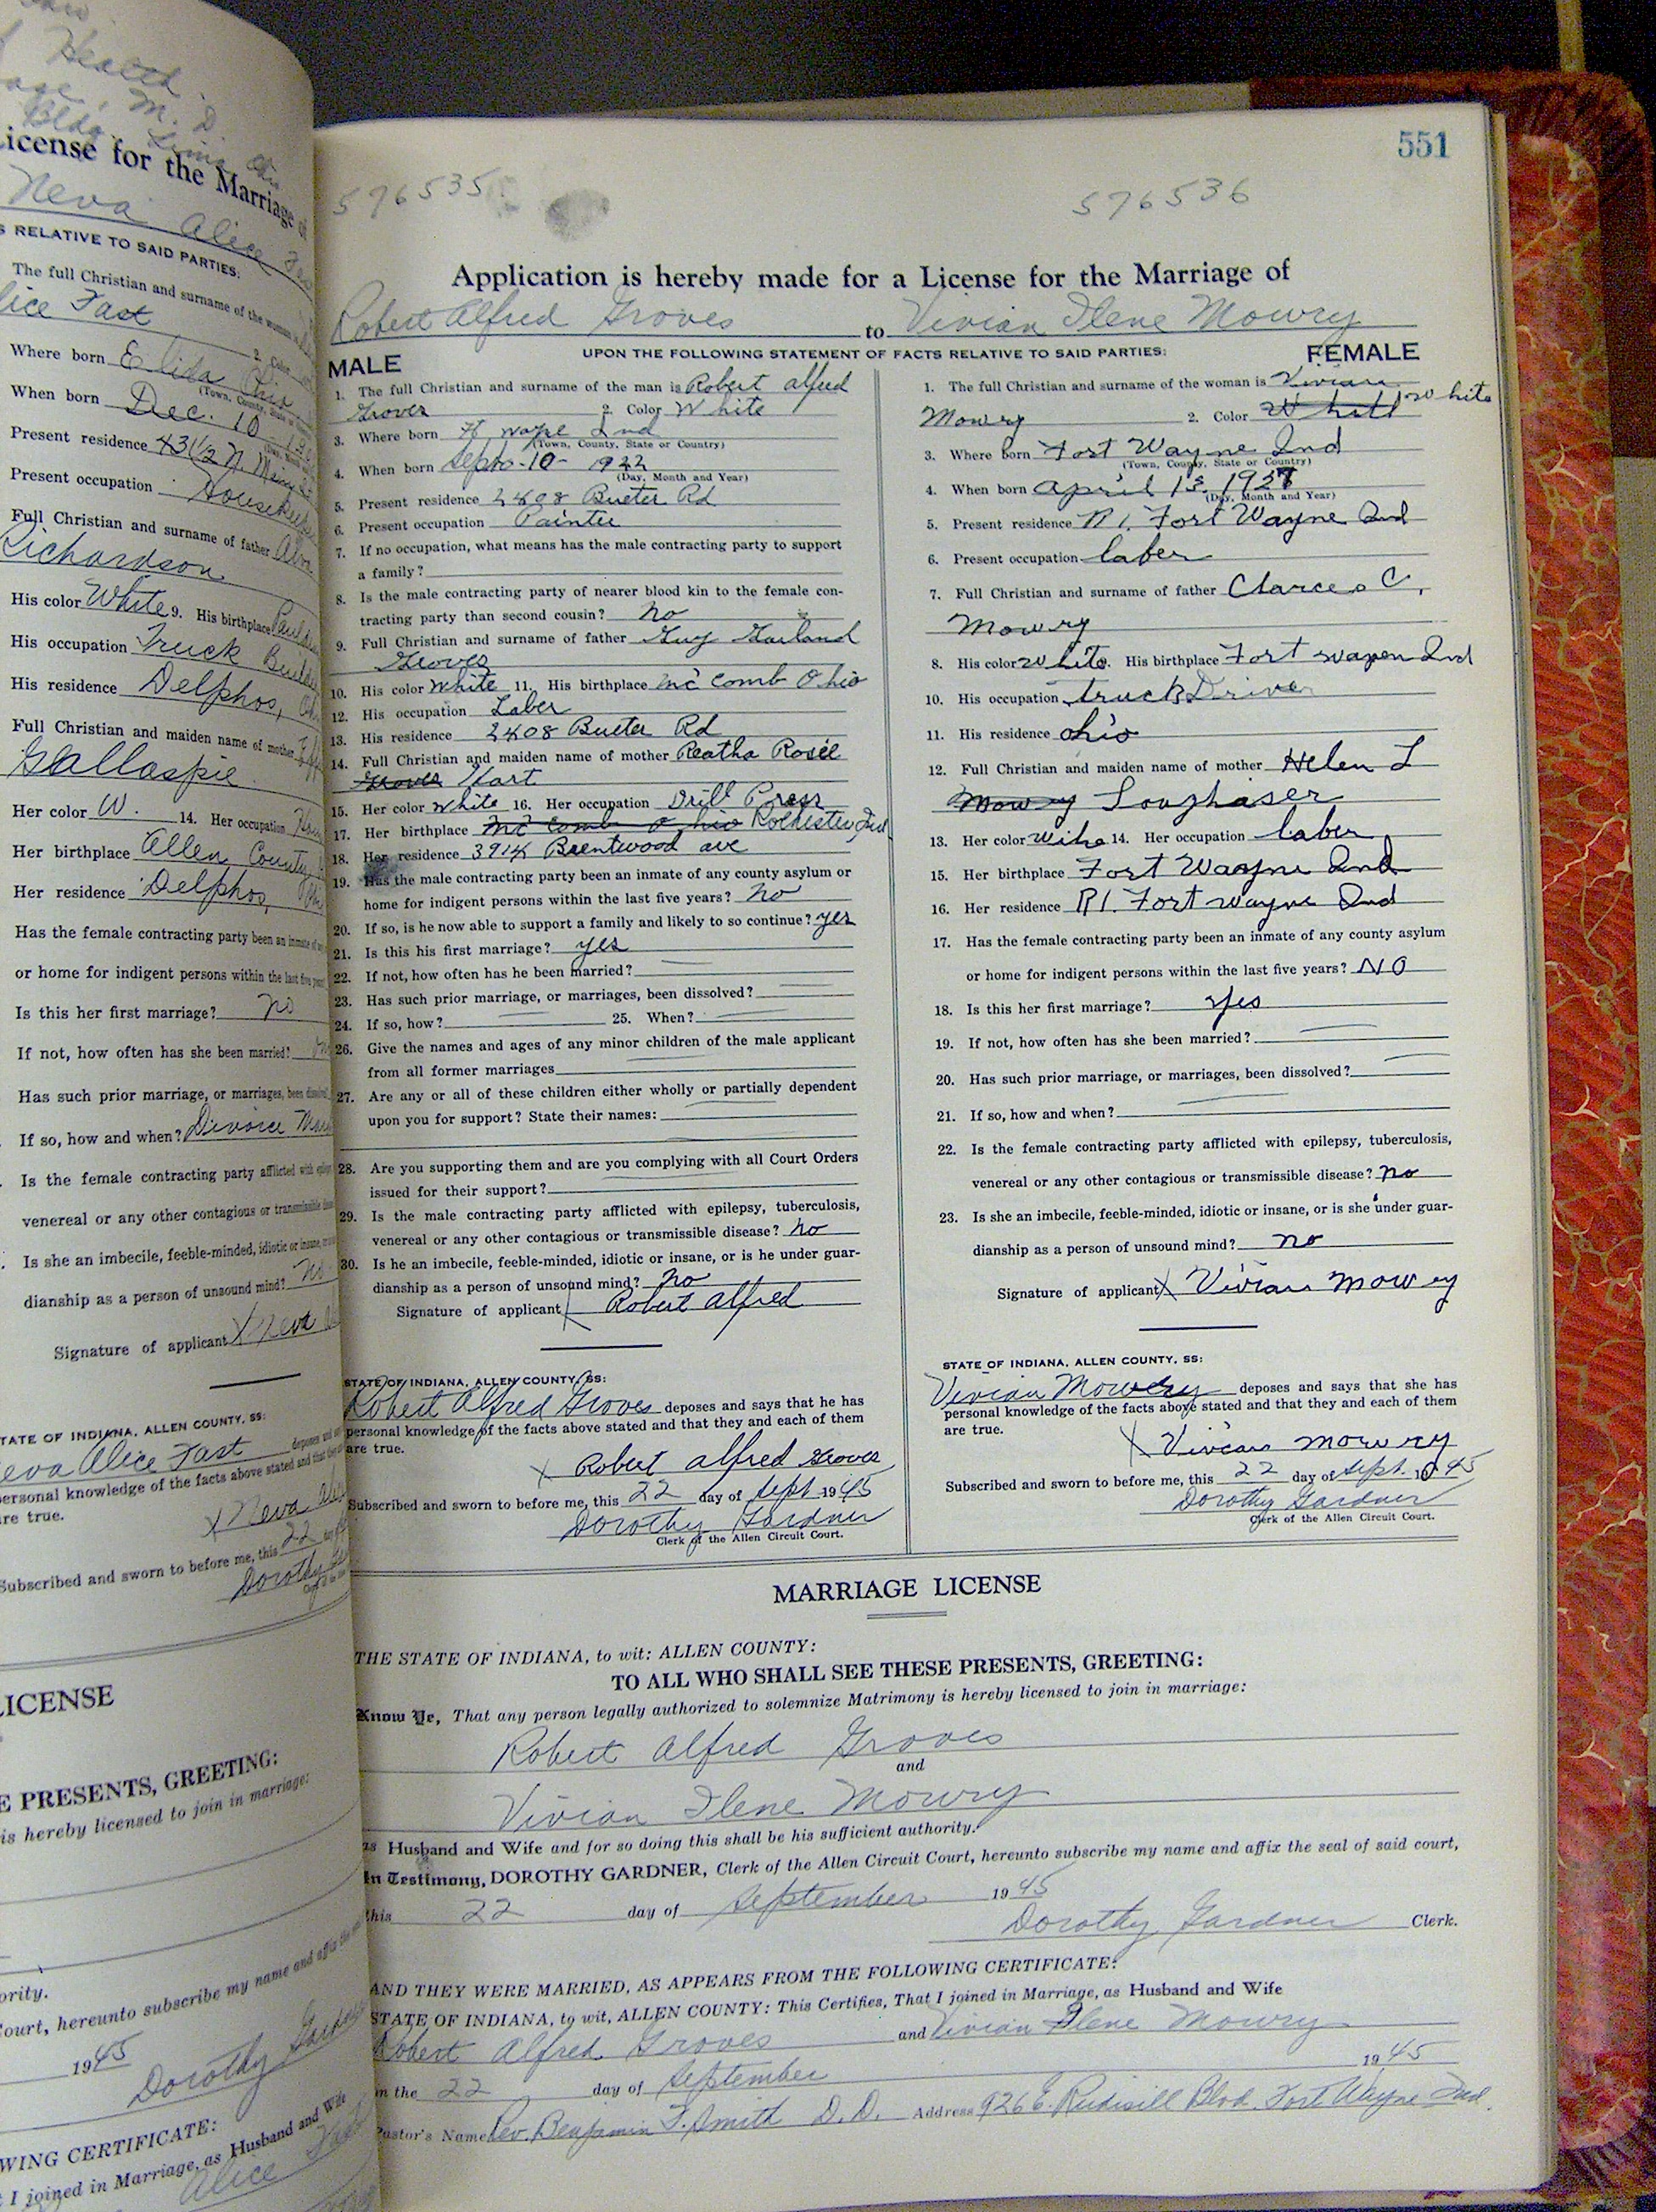 Health
M. D.
Bldg. Lima
License for the Marriage of
Neva Alice
S RELATIVE TO SAID PARTIES:
The full Christian and surname of the woman
lice Fast 2. Color
Where born Elida Ohio
(Town, County, State
When born Dec. 10
Present residence 431½ N. Main
Present occupation Housekeeper
Full Christian and surname of father
Richardson
His color White 9. His birthplace
His occupation Truck
His residence Delphos,
Full Christian and maiden name of mother
Gallaspie
Her color W. 14. Her occupation
Her birthplace Allen County
Her residence Delphos,
Has the female contracting party been an inmate of
or home for indigent persons within the last five
Is this her first marriage? no
If not, how often has she been married?
Has such prior marriage, or marriages, been
If so, how and when? Divorce
Is the female contracting party afflicted with
venereal or any other contagious or transmissible
Is she an imbecile, feeble-minded, idiotic or insane,
dianship as a person of unsound mind? no
Signature of applicant X Neva
TATE OF INDIANA, ALLEN COUNTY, SS:
eva Alice Fast deposes
personal knowledge of the facts above stated and that
are true.
X Neva
Subscribed and sworn to before me, this 22
Dorothy
LICENSE
E PRESENTS, GREETING:
is hereby licensed to join in marriage:
ority.
Court, hereunto subscribe my name and affix the
1945
Dorothy
WING CERTIFICATE:
I joined in Marriage, as Husband and Wife
Alice
551
576535
576536
Application is hereby made for a License for the Marriage of
Robert Alfred Groves to Vivian Ilene Mowry
UPON THE FOLLOWING STATEMENT OF FACTS RELATIVE TO SAID PARTIES:
MALE
1. The full Christian and surname of the man is Robert alfred
Groves 2. Color White
3. Where born Ft wayne Ind
(Town, County, State or Country)
4. When born Sept-10- 1922
(Day, Month and Year)
5. Present residence 2408 Bueter Rd
6. Present occupation Painter
7. If no occupation, what means has the male contracting party to support
a family?
8. Is the male contracting party of nearer blood kin to the female con-
tracting party than second cousin? no
9. Full Christian and surname of father Guy Garland
Groves
10. His color white 11. His birthplace Mc Comb Ohio
12. His occupation Laber
13. His residence 2408 Bueter Rd
14. Full Christian and maiden name of mother Reatha Rosie
Groves Hart
15. Her color white 16. Her occupation Drill Press
17. Her birthplace Mc Comb Ohio Rochester Ind
18. Her residence 3914 Brentwood ave
19. Has the male contracting party been an inmate of any county asylum or
home for indigent persons within the last five years? no
20. If so, is he now able to support a family and likely to so continue? yes
21. Is this his first marriage? yes
22. If not, how often has he been married?
23. Has such prior marriage, or marriages, been dissolved?
24. If so, how? 25. When?
26. Give the names and ages of any minor children of the male applicant
from all former marriages
27. Are any or all of these children either wholly or partially dependent
upon you for support? State their names:
28. Are you supporting them and are you complying with all Court Orders
issued for their support?
29. Is the male contracting party afflicted with epilepsy, tuberculosis,
venereal or any other contagious or transmissible disease? no
30. Is he an imbecile, feeble-minded, idiotic or insane, or is he under guar-
dianship as a person of unsound mind? no
Signature of applicant X Robert alfred
STATE OF INDIANA, ALLEN COUNTY, SS:
Robert Alfred Groves deposes and says that he has
personal knowledge of the facts above stated and that they and each of them
are true.
X Robert alfred Groves
Subscribed and sworn to before me, this 22 day of Sept 1945
Dorothy Gardner
Clerk of the Allen Circuit Court.
FEMALE
1. The full Christian and surname of the woman is Vivian
Mowry 2. Color White white
3. Where born Fort Wayne Ind
(Town, County, State or Country)
4. When born april 13, 1927
(Day, Month and Year)
5. Present residence R1. Fort Wayne Ind
6. Present occupation laber
7. Full Christian and surname of father Clarce C,
Mowry
8. His color White. His birthplace Fort wayen Ind
10. His occupation truck Driver
11. His residence ohio
12. Full Christian and maiden name of mother Helen L
Mowry Longhaser
13. Her color Wihe 14. Her occupation laber
15. Her birthplace Fort Wayne Ind
16. Her residence R1. Fort wayne Ind
17. Has the female contracting party been an inmate of any county asylum
or home for indigent persons within the last five years? NO
18. Is this her first marriage? yes
19. If not, how often has she been married?
20. Has such prior marriage, or marriages, been dissolved?
21. If so, how and when?
22. Is the female contracting party afflicted with epilepsy, tuberculosis,
venereal or any other contagious or transmissible disease? no
23. Is she an imbecile, feeble-minded, idiotic or insane, or is she under guar-
dianship as a person of unsound mind? no
Signature of applicant X Vivian Mowry
STATE OF INDIANA, ALLEN COUNTY, SS:
Vivian Mowery deposes and says that she has
personal knowledge of the facts above stated and that they and each of them
are true.
X Vivian Mowry
Subscribed and sworn to before me, this 22 day of Sept. 1945
Dorothy Gardner
Clerk of the Allen Circuit Court.
MARRIAGE LICENSE
THE STATE OF INDIANA, to wit: ALLEN COUNTY:
TO ALL WHO SHALL SEE THESE PRESENTS, GREETING:
Know Ye, That any person legally authorized to solemnize Matrimony is hereby licensed to join in marriage:
Robert Alfred Groves
and
Vivian Ilene Mowry
as Husband and Wife and for so doing this shall be his sufficient authority.
In Testimony, DOROTHY GARDNER, Clerk of the Allen Circuit Court, hereunto subscribe my name and affix the seal of said court,
this 22 day of September 1945
Dorothy Gardner Clerk.
AND THEY WERE MARRIED, AS APPEARS FROM THE FOLLOWING CERTIFICATE:
STATE OF INDIANA, to wit, ALLEN COUNTY: This Certifies, That I joined in Marriage, as Husband and Wife
Robert Alfred Groves and Vivian Ilene Mowry
on the 22 day of September 1945
Pastor's Name Rev. Benjamin F. Smith D.D. Address 926 E. Rudisill Blvd. Fort Wayne Ind.